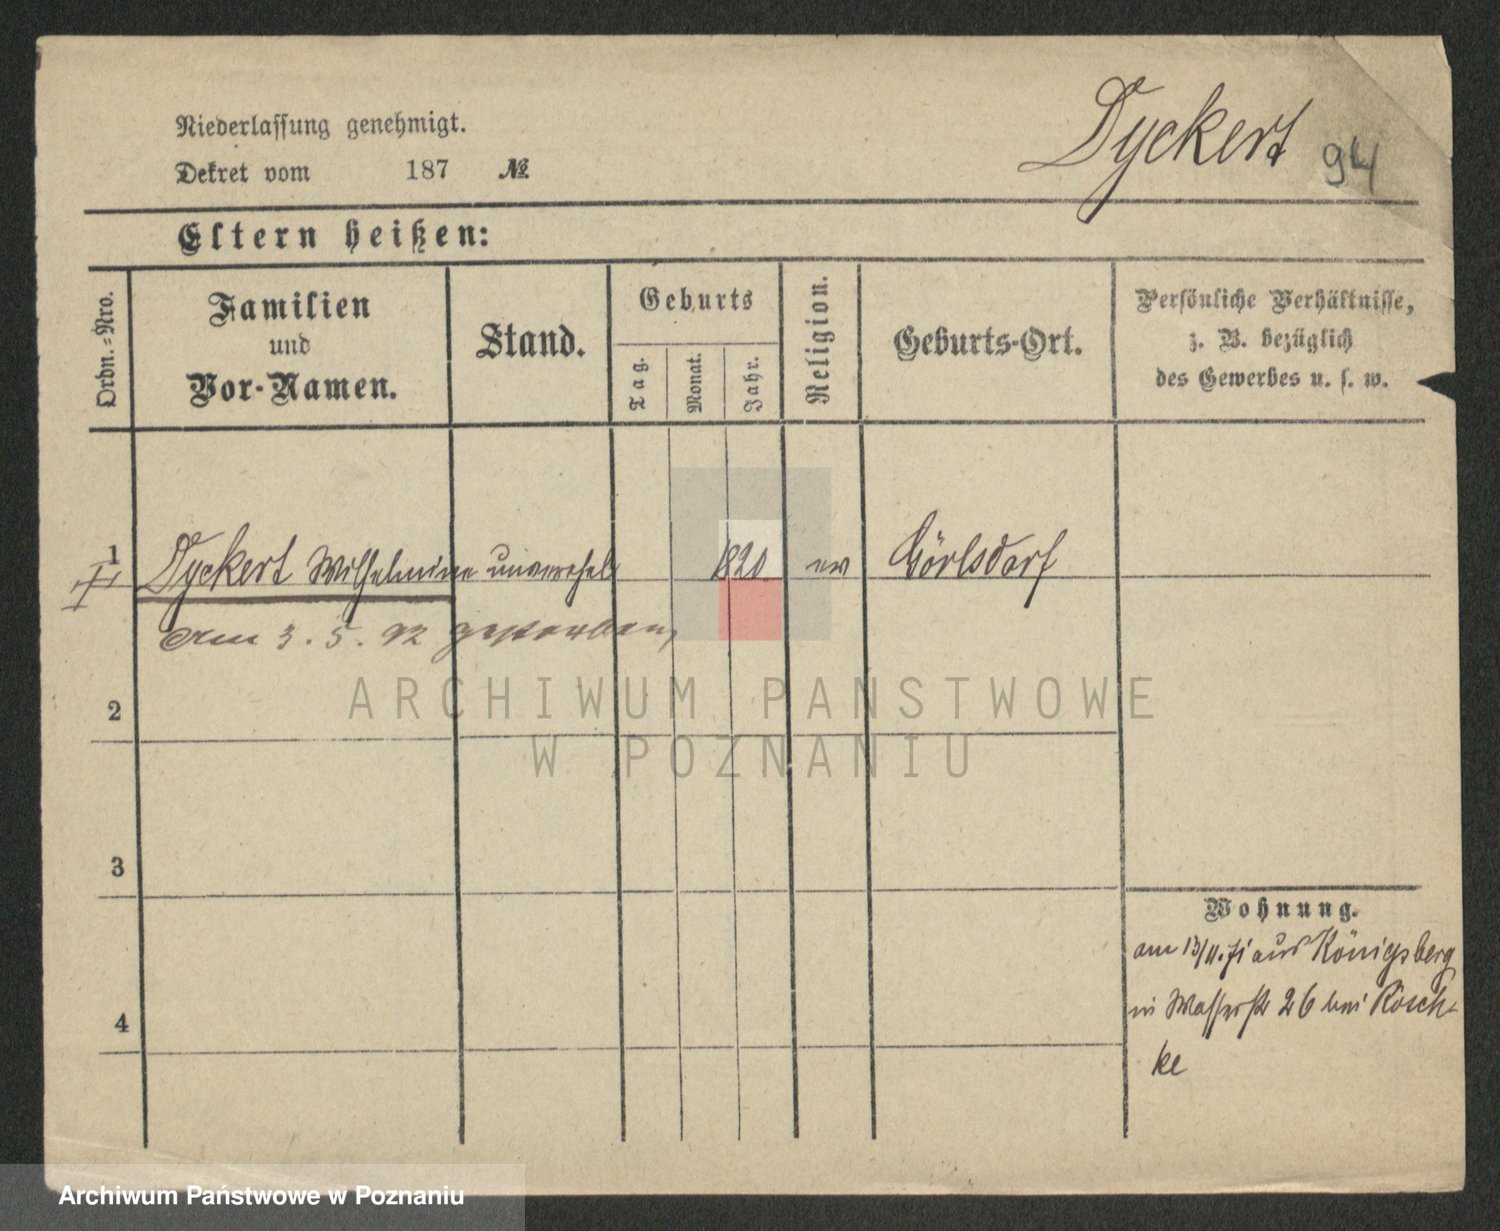 Niederlassung genehmigt.
Dekret vom 187 №
Dyckert 94
Eltern heißen:
Ordn.-Nro.
Familien
und
Vor-Namen.
Stand.
Geburts
Tag.
Monat.
Jahr.
Religion.
Geburts-Ort.
Persönliche Verhältnisse,
z. B. bezüglich
des Gewerbes u. s. w.
1 Dyckert Wilhelmine unverehel 1820 ev Görlsdorf
II
am 3. 5. 92 gestorben,
ARCHIWUM PAŃSTWOWE
W POZNANIU
2
3
4
Wohnung.
am 13/11. 71 aus Königsberg
in Wasserstr 26 bei Rösch-
ke
Archiwum Państwowe w Poznaniu